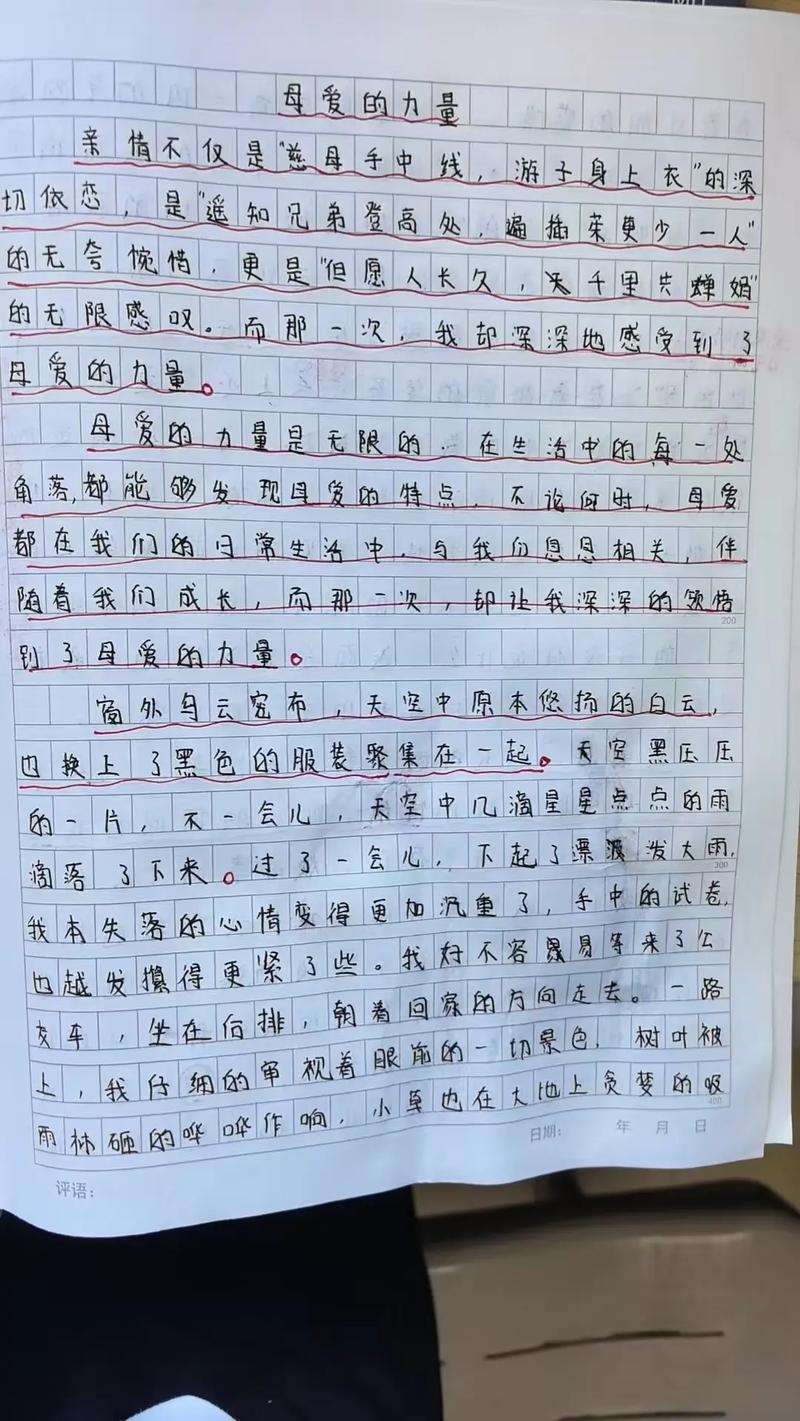 母爱的力量
亲情不仅是“慈母手中线，游子身上衣”的深
切依恋，是“遥知兄弟登高处，遍插茱更少一人”
的无夸惋惜，更是“但愿人长久，千里共蝉娟”
的无限感叹。而那一次，我却深深地感受到了
母爱的力量。
母爱的力量是无限的．在生活中的每一处
角落，都能够发现母爱的特点．不论何时，母爱
都在我们的日常生活中，与我们息息相关，伴
随着我们成长，而那一次，却让我深深的领悟
到了母爱的力量。
200
窗外乌云密布，天空中原本悠扬的白云，
也换上了黑色的服装聚集在一起。天空黑压压
的一片，不一会儿，天空中几滴星星点点的雨
滴落了下来。过了一会儿，下起了瓢泼大雨．
300
我本失落的心情变得更加沉重了，手中的试卷，
也越发攥得更紧了些。我好不容易等来了公
交车，坐在后排，朝着回家的方向走去。一路
上，我仔细的审视着眼前的一切景色．树叶被
雨林砸的哗哗作响，小草也在大地上贪婪的吸
400
日期： 年 月 日
评语：